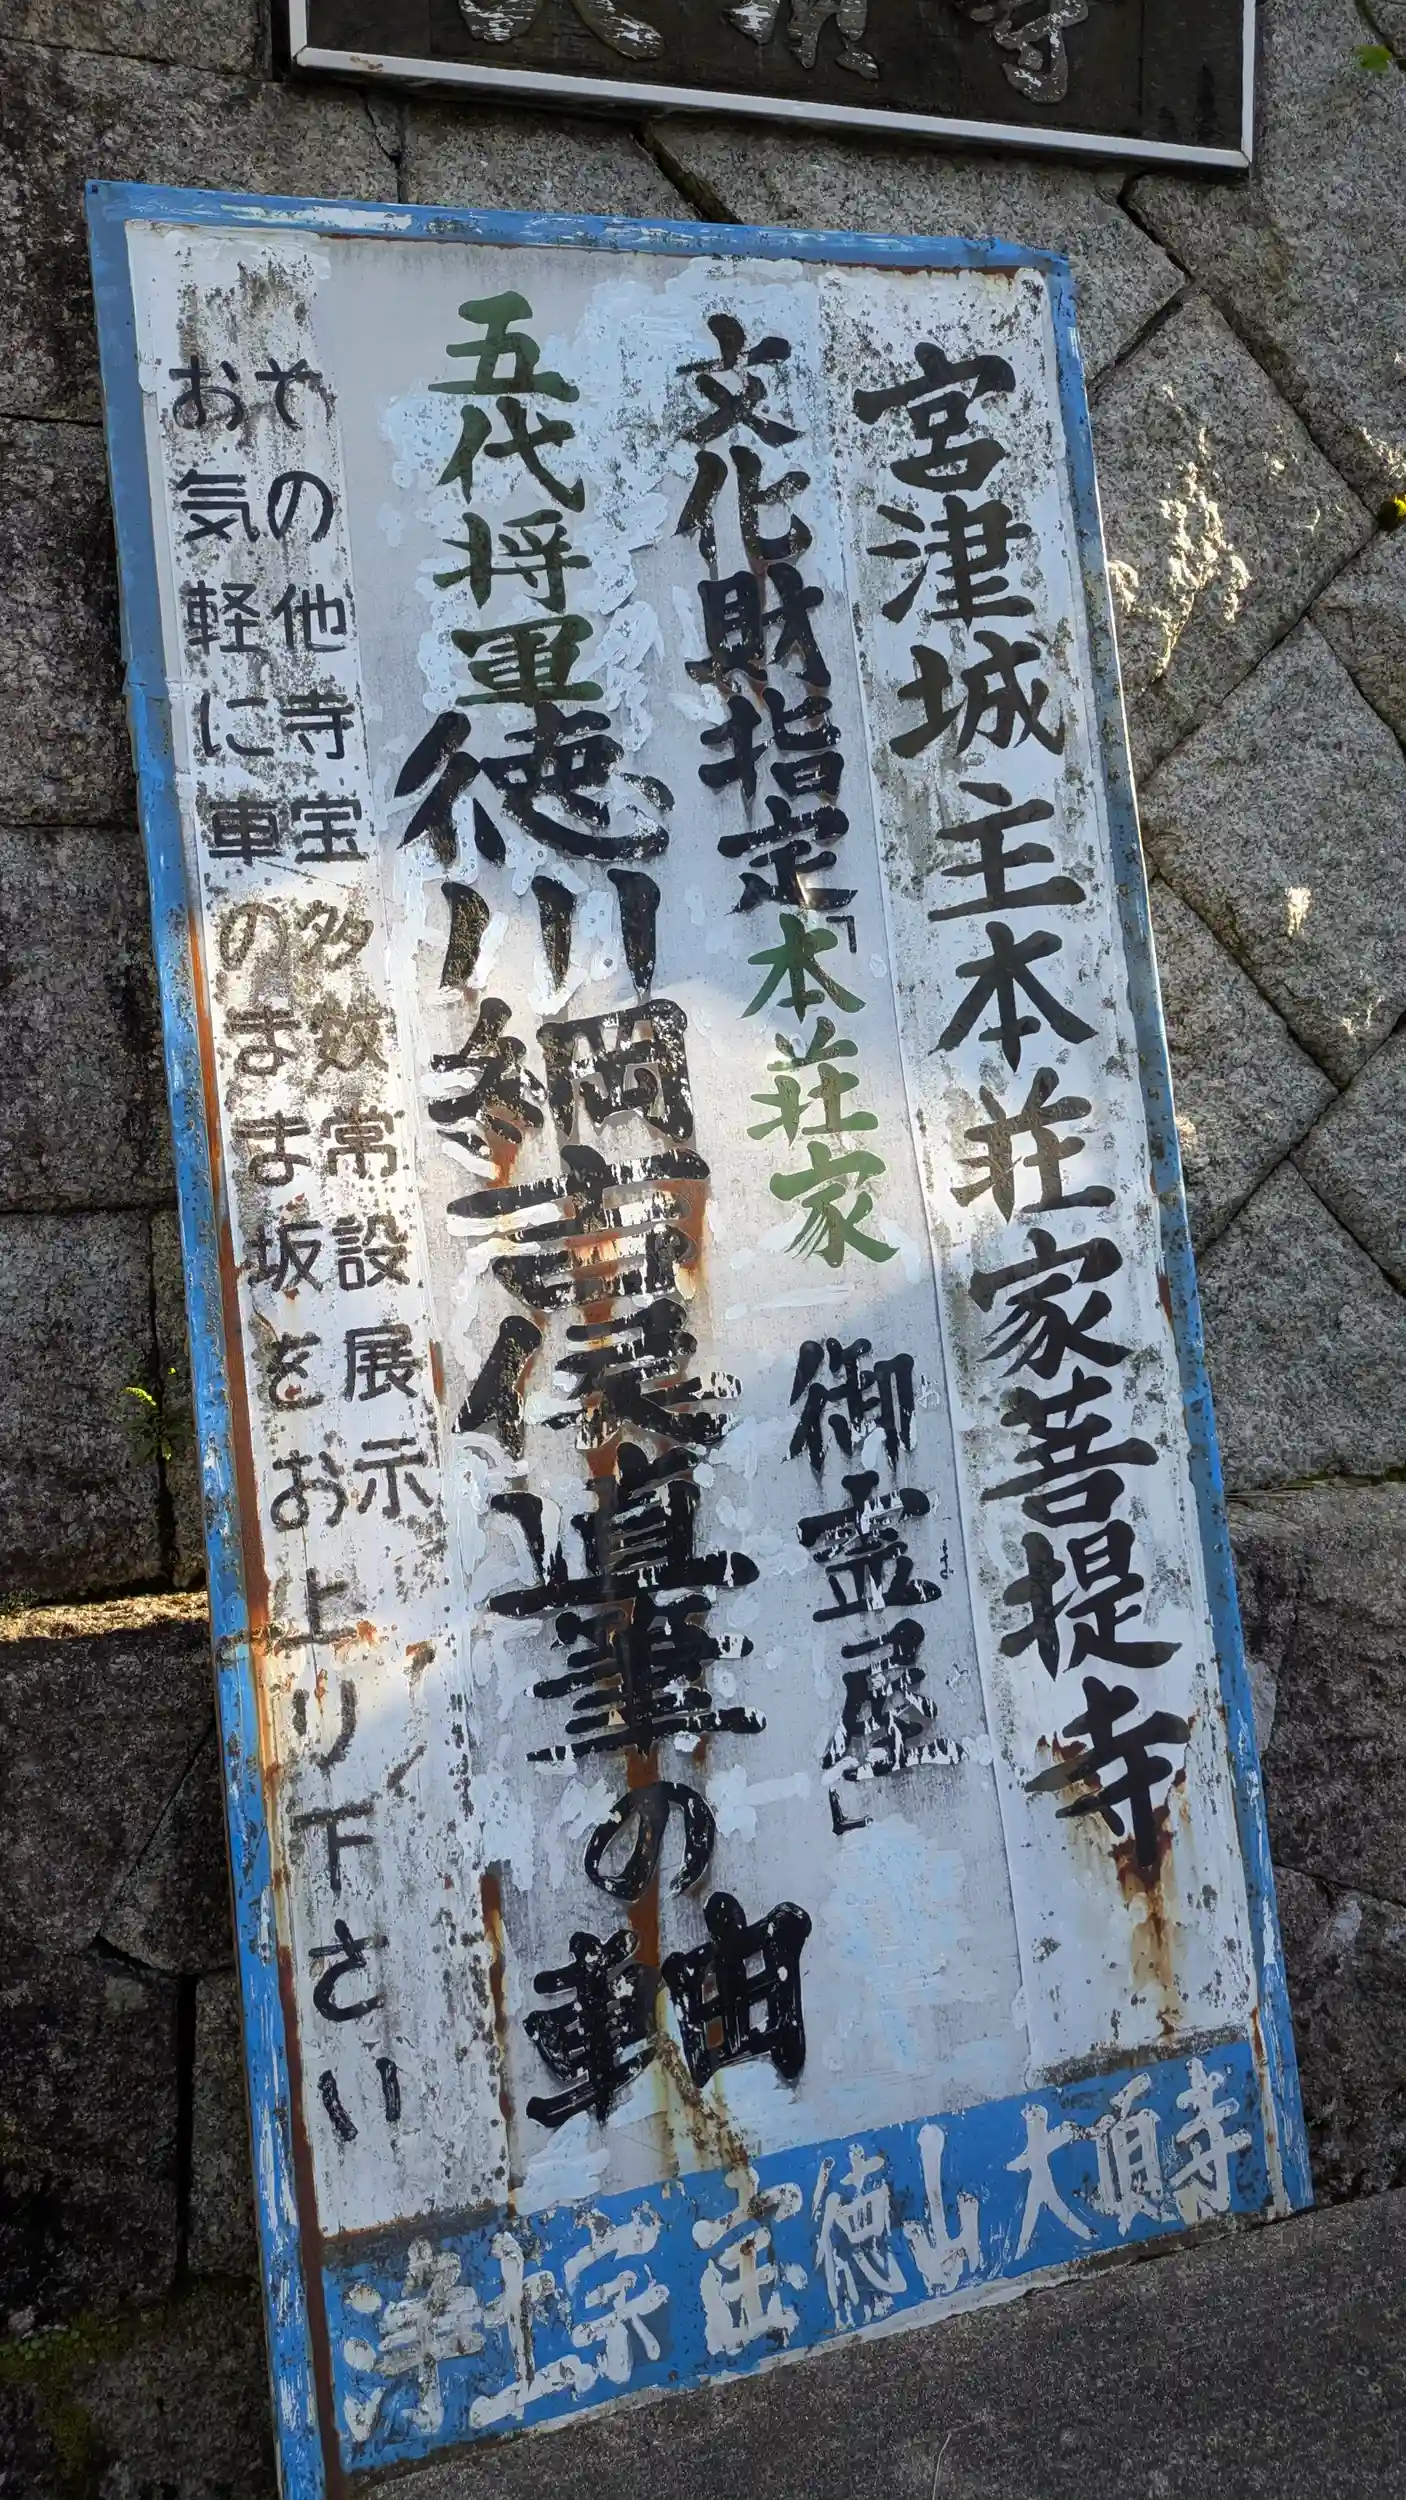 大頂寺
宮津城主本荘家菩提寺
文化財指定「本荘家 御霊屋」
五代将軍徳川綱吉侯直筆の軸
その他寺宝多数常設展示
お気軽に車のまま坂をお上り下さい
浄土宗 宝徳山 大頂寺